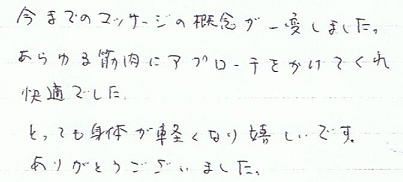 今までのマッサージの概念が一変しました。
あらゆる筋肉にアプローチをかけてくれ
快適でした。
とっても身体が軽くなり嬉しいです。
ありがとうございました。